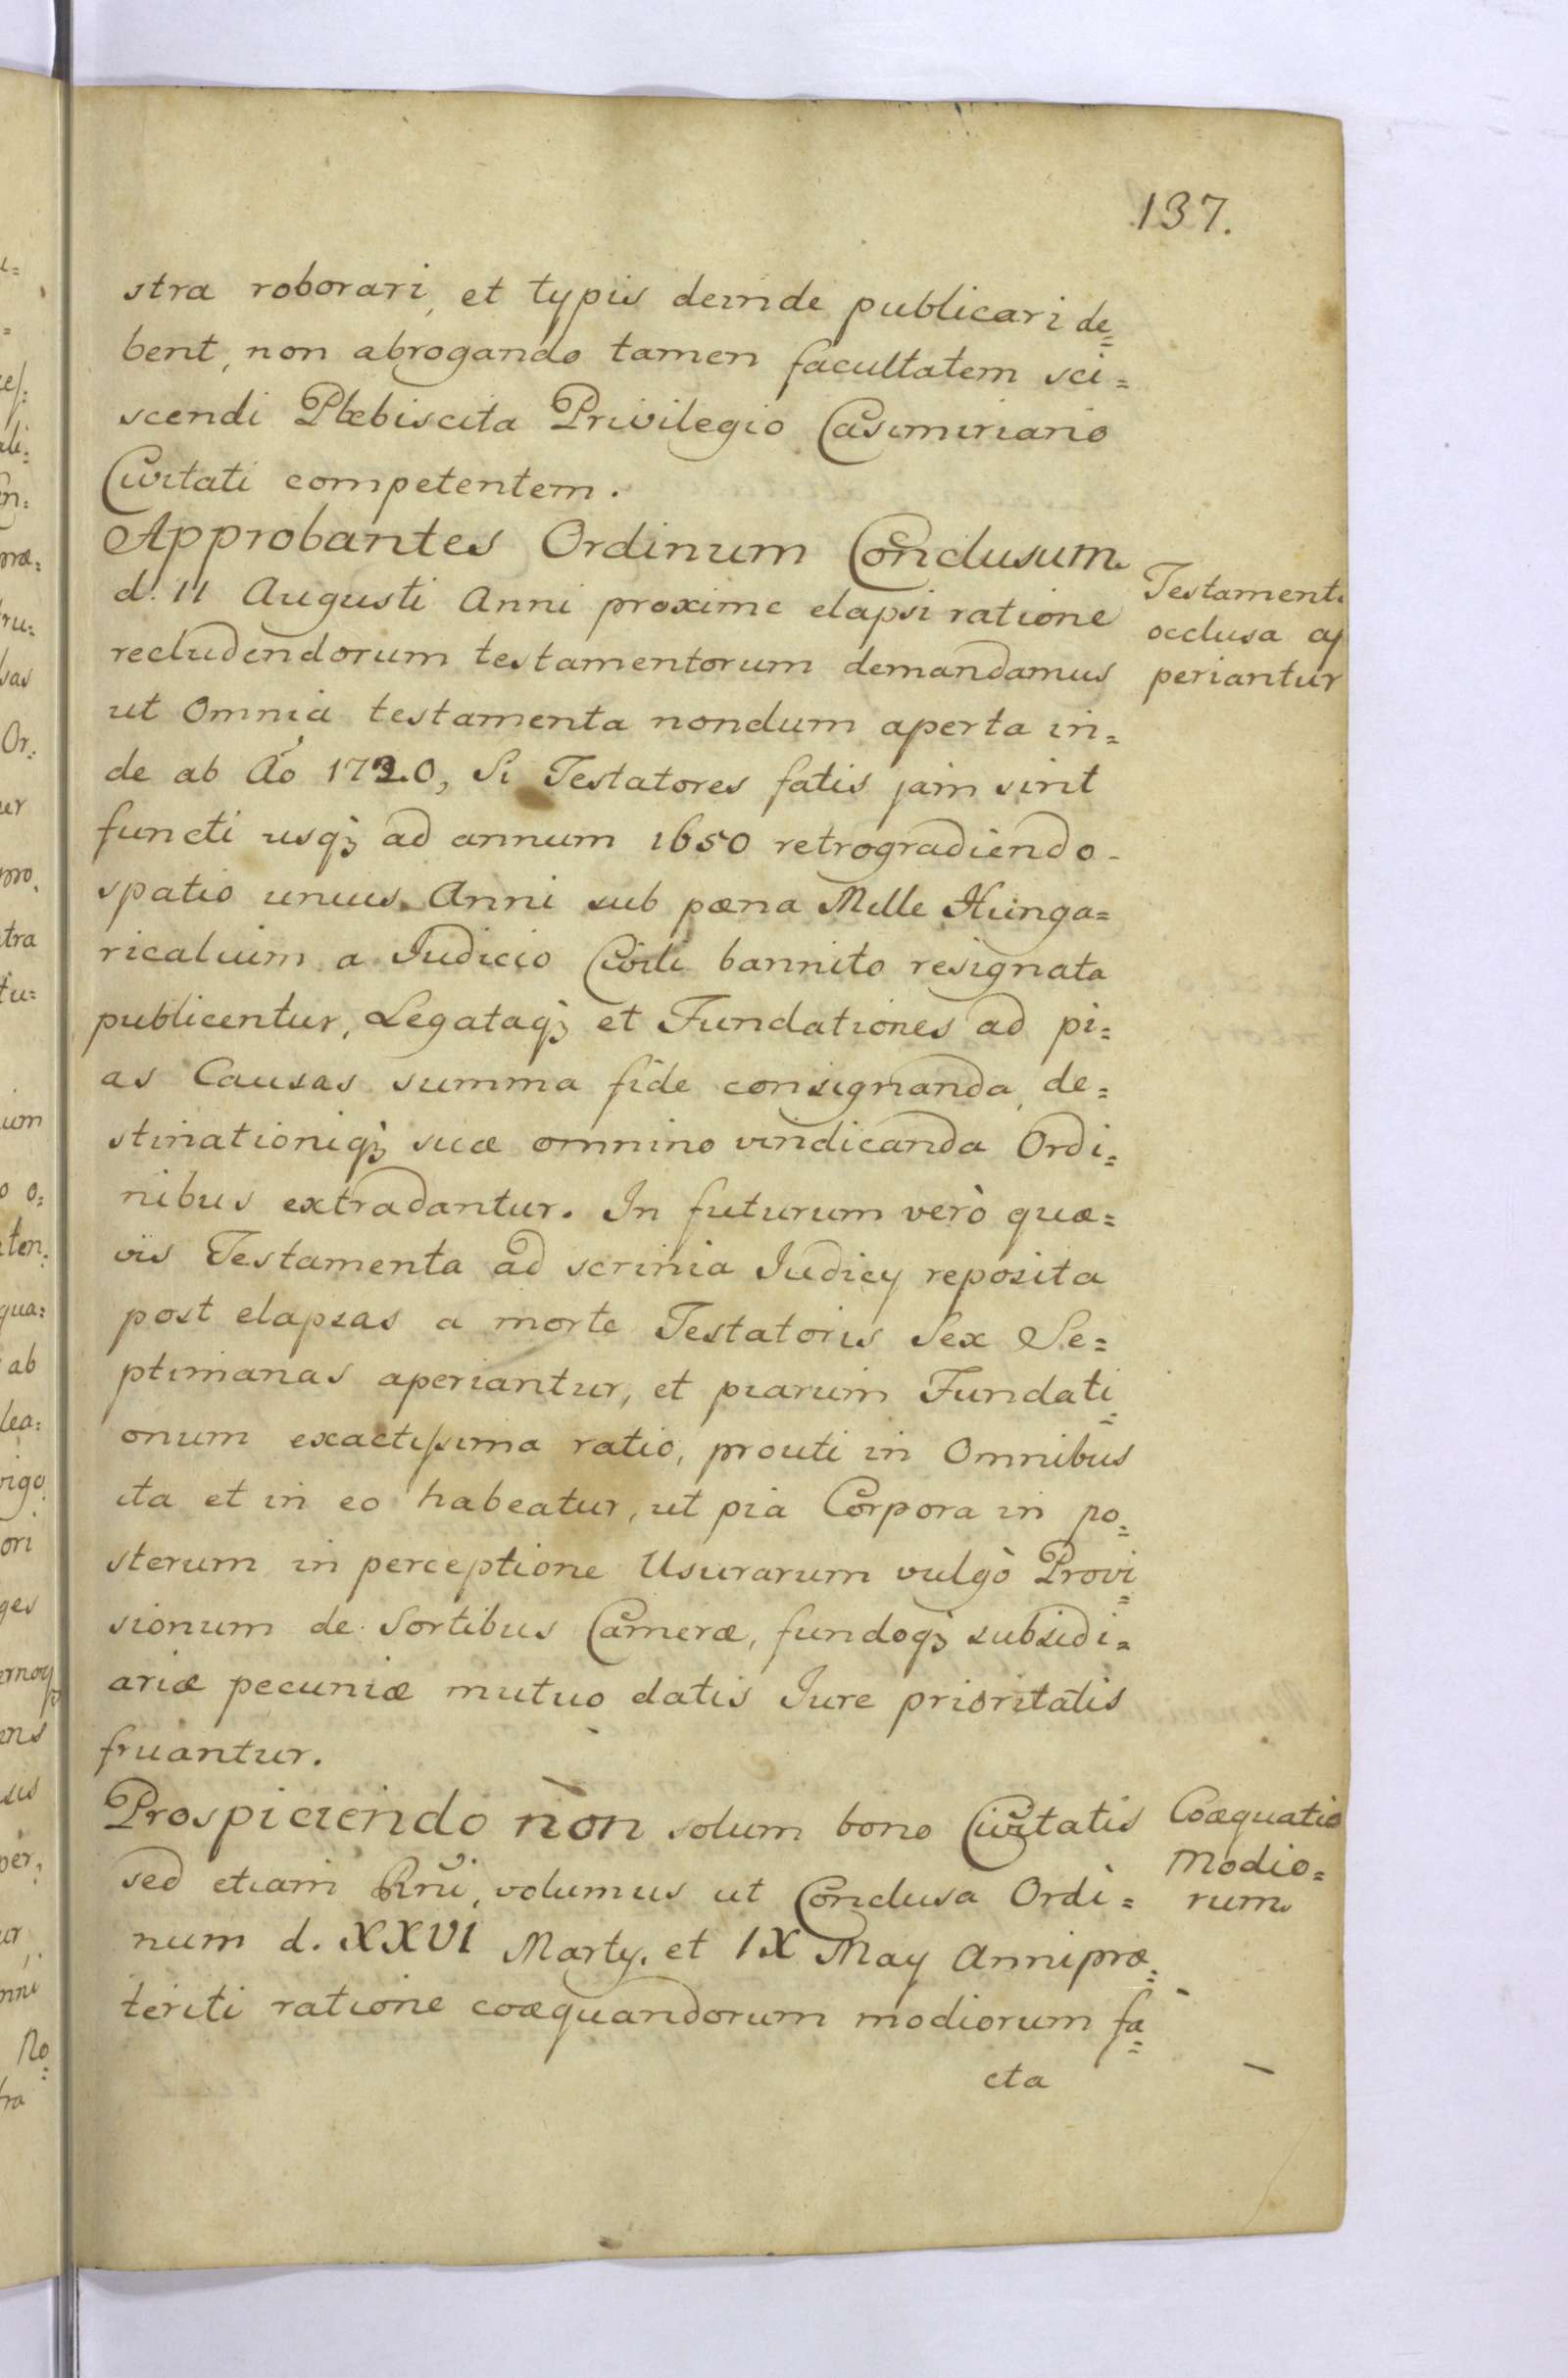 137.
stra roborari, et typis deinde publicari de=
bent, non abrogando tamen facultatem sci=
scendi Plebiscita Privilegio Casimiriano
Civitati competentem.
Approbantes Ordinum Conclusum
d. 11 Augusti Anni proxime elapsi ratione
recludendorum testamentorum demandamus
ut Omnia testamenta nondum aperta in=
de ab Ao 1720, Si Testatores fatis jam sint
functi usq3 ad annum 1650 retrogradiendo-
spatio unius Anni sub pœna Mille Hunga=
ricalium a Judicio Civili bannito resignata
publicentur, Legataq3 et Fundationes ad pi=
as Causas summa fide consignanda, de=
stinationiq3 suæ omnino vindicanda Ordi=
nibus extradantur. In futurum verò quæ=
vis Testamenta ad scrinia Judicy reposita
post elapsas a morte Testatoris Sex Se=
ptimanas aperiantur, et piarum Fundati=
onum exactissima ratio, prouti in Omnibus
ita et in eo habeatur, ut pia Corpora in po=
sterum in perceptione Usurarum vulgò Provi=
sionum de Sortibus Cameræ, fundoq3 subsidi=
ariæ pecuniæ mutuo datis Jure prioritatis
fruantur.
Prospiciendo non solum bono Civitatis
sed etiam Rnū, volumus ut Conclusa Ordi=
num d. XXVI Marty. et IX May Anni præ=
teriti ratione coæquandorum modiorum fa=
cta
Testament
occlusa a
periantur
Coæquatio
Modio=
rum